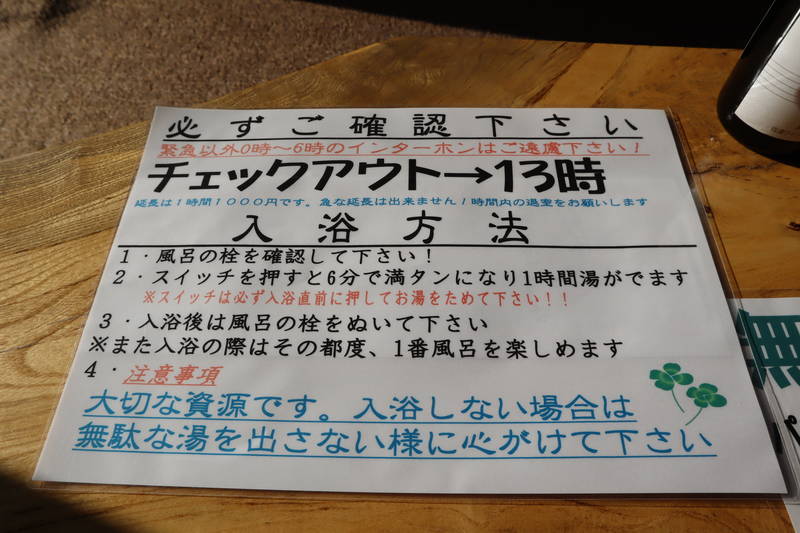 必ずご確認下さい
緊急以外0時～6時のインターホンはご遠慮下さい！
チェックアウト→13時
延長は1時間1000円です。急な延長は出来ません！時間内の退室をお願いします
入浴方法
1・風呂の栓を確認して下さい！
2・スイッチを押すと6分で満タンになり1時間湯がでます
※スイッチは必ず入浴直前に押してお湯をためて下さい！！
3・入浴後は風呂の栓をぬいて下さい
※また入浴の際はその都度、1番風呂を楽しめます
4・注意事項
大切な資源です。入浴しない場合は
無駄な湯を出さない様に心がけて下さい
無